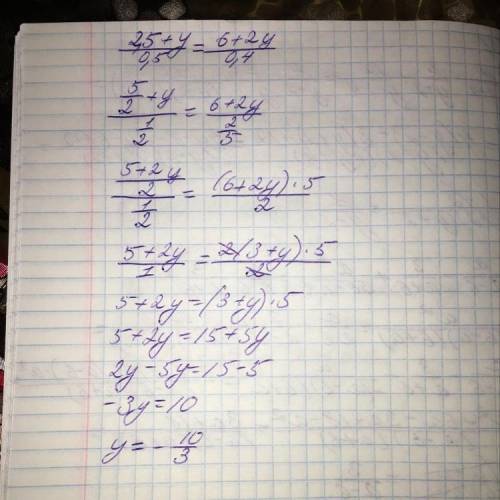 (2,5+y)/0,5 = (6+2y)/0,4
(5/2+y)/(1/2) = (6+2y)/(2/5)
((5+2y)/2)/(1/2) = ((6+2y)·5)/2
(5+2y)/1 = (2(3+y)·5)/2
5+2y=(3+y)·5
5+2y=15+5y
2y-5y=15-5
-3y=10
y=-10/3